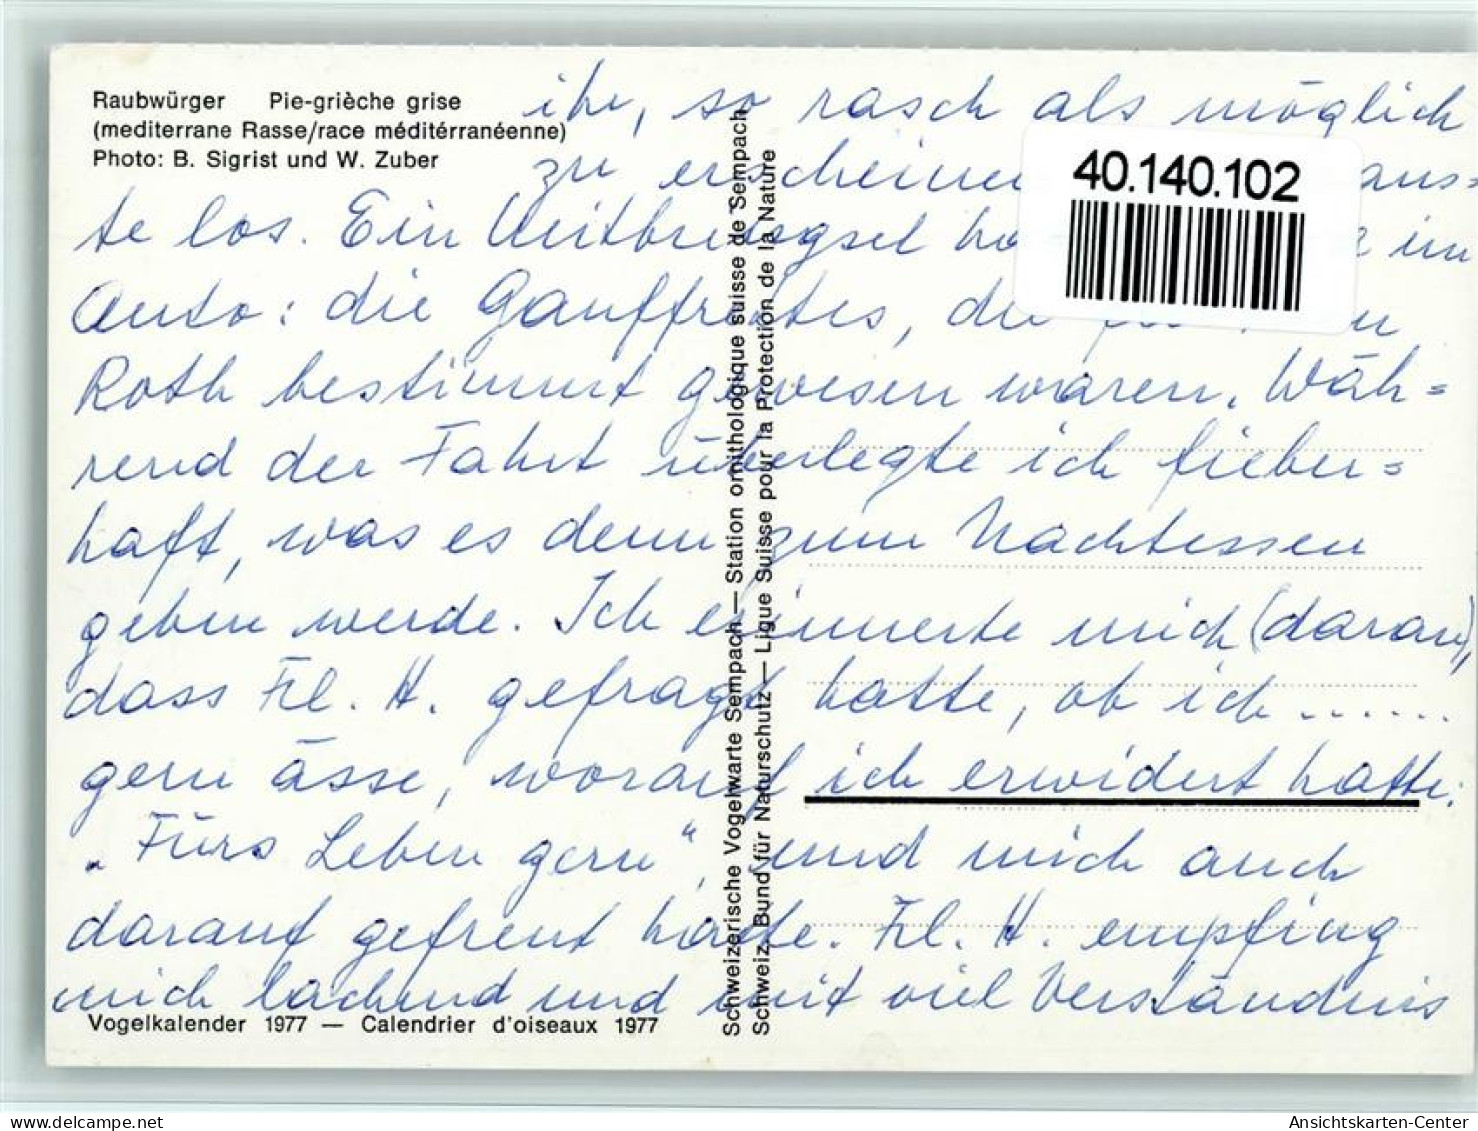 Raubwürger Pie-grièche grise
(mediterrane Rasse/race méditérranéenne)
Photo: B. Sigrist und W. Zuber
ihr, so rasch als möglich
zu erscheinen aus=
te los. Ein im
Auto: die Gauffrettes,
Roth bestimmt gewesen waren. Wäh=
rend der Fahrt überlegte ich fieber=
haft, was es denn zum Nachtessen
geben werde. Ich erinnerte mich (daran),
dass Frl. H. gefragt hatte, ob ich ......
gern ässe, worauf ich erwidert hatte:
„Fürs Leben gern“, und mich auch
darauf gefreut hatte. Frl. H. empfing
mich lachend und mit viel Verständnis
Vogelkalender 1977 — Calendrier d'oiseaux 1977
Schweizerische Vogelwarte Sempach — Station ornithologique suisse de Sempach
Schweiz. Bund für Naturschutz — Ligue Suisse pour la Protection de la Nature
40.140.102
delcampe.net
Ansichtskarten-Center